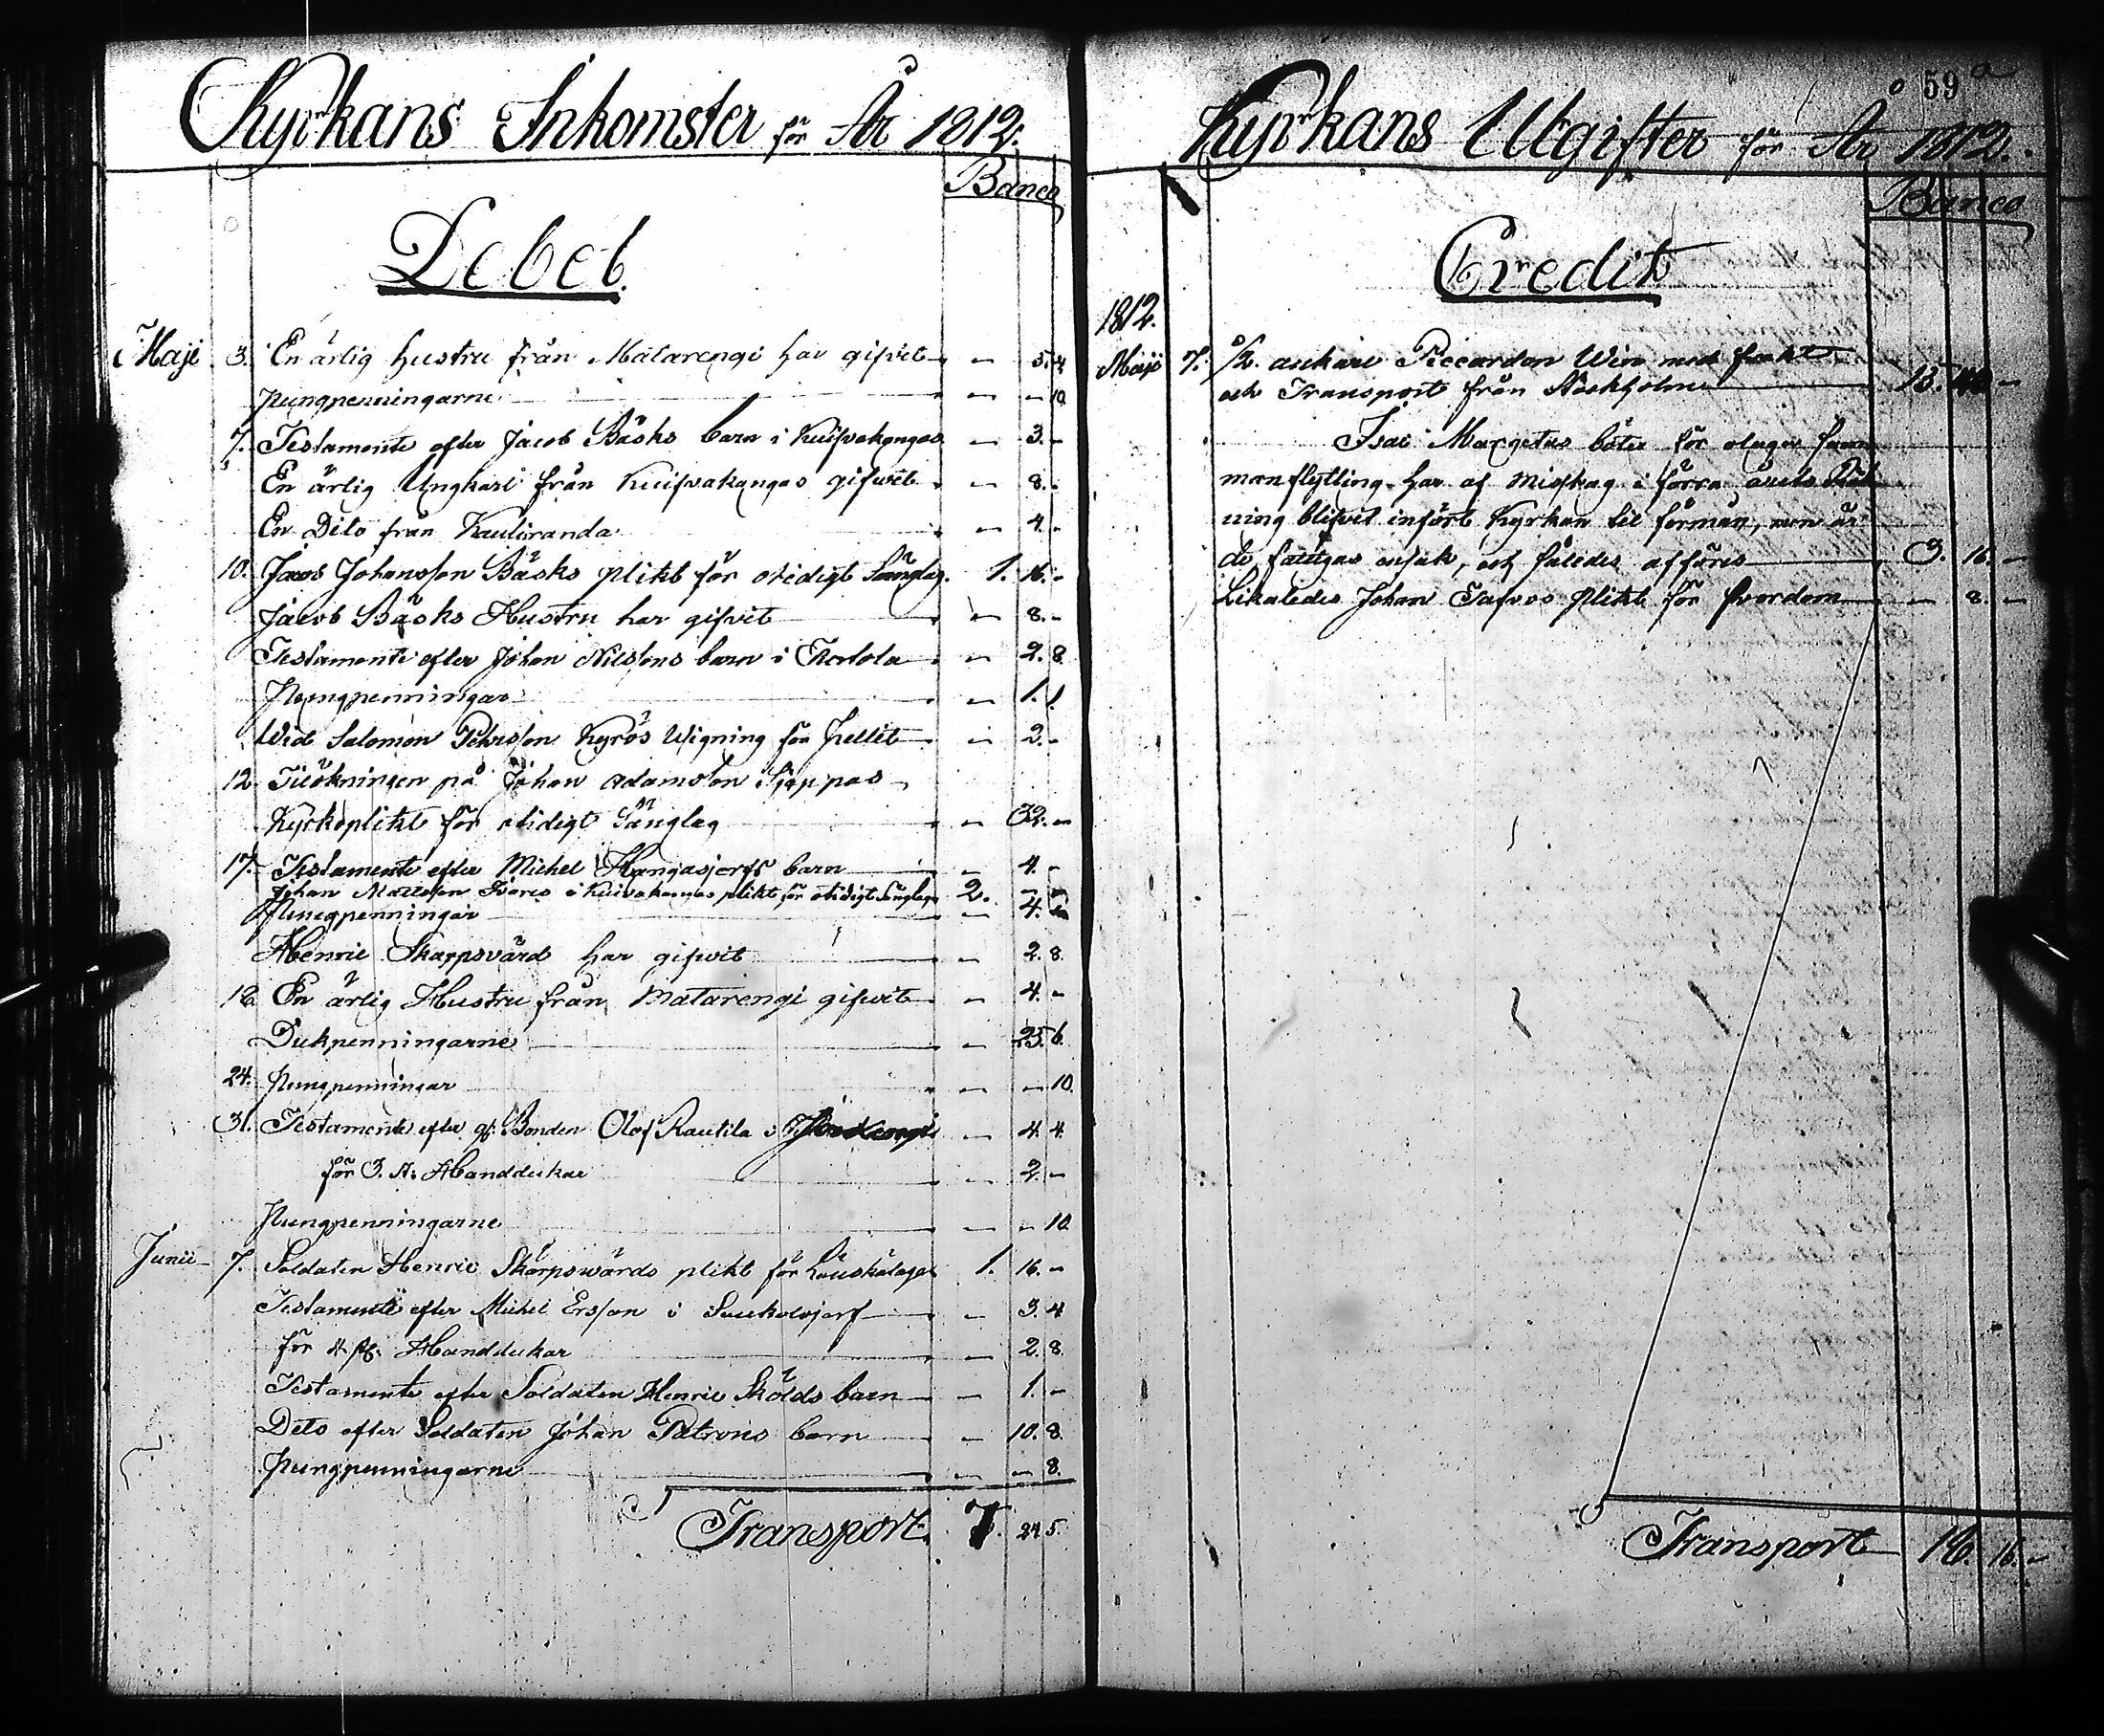 Kyrkans Inkomster för År 1812.
Banco
Debet.
Maji 3. En ärlig hustru från Matarengi har gifvit — 5. 4
Pungpenningarne — — 10
7. Testamente efter Jacob Bäsks barn i Kuifvakangas — 3. —
En ärlig Ungkarl från Kuifvakangas gifwit — 8. —
En Dito från Kauliranda — 4. —
10. Jacob Johansson Bäsks plikt för otidigt Sänglag. 1. 16. —
Jacob Bäsks Hustru har gifvit — 8. —
Testamente efter Johan Nilssons barn i — 2. 8
Pungpenningar — 1. 1.
Wid Salomon Pehrsson Kyrös Wigning för Pellet — 2. —
12. Tilökningen på Johan Adamsson Sjeppas
Kyrkoplikt för otidigt Sänglag — 32. —
17. Testamente efter Michel Hangasjerfs barn — 4. —
Johan Mattsson i Kuivakangas plikt för otidigt Sänglag 2. — —
Pungpenningar — 4.
Henric Skarpsvärd har gifwit — 2. 8.
18. En ärlig Hustru från Matarengi gifwit — 4. —
Dukpenningarne — 25. 6.
24. Pungpenningar — — 10.
31. Testamente efter gf. Bonden Olof Rautila i — 4. 4.
för 3. st. Handdukar — 2. —
Pungpenningarne — — 10.
Junii 7. Soldaten Henric Skarpswärds plikt för Löuskaläget 1. 16. —
Testamente efter Michel Ersson i — 3. 4
för Handdukar — 2. 8.
Testamente efter Soldaten Henric Skölds barn — 1. —
Dito efter Soldaten Johan Patrons barn — 10. 8.
Pungpenningarne — — 8.
Transport. 7. 24. 5.
59 a
Kyrkans Utgifter för År 1812.
Banco
Credit
1812.
Maji 7. 1/2. ankare Piccardon Win med frakt
och Transport från Stockholm
Isac Margetas böter för olaga
manflyttning har af misstag i förra årets Räk
ning blifvit infört Kyrkan til förmån, men är
de fattigas ensak, och således afföres 3. 16. —
Likaledes Johan Tafvos plikt för — 8. —
Transport 16.